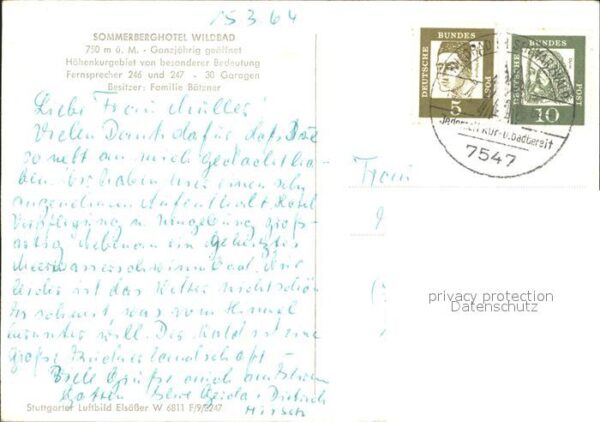 15.3.64
SOMMERBERGHOTEL WILDBAD
750 m ü. M. - Ganzjährig geöffnet
Höhenkurgebiet von besonderer Bedeutung
Fernsprecher 246 und 247 - 30 Garagen
Besitzer: Familie Bätzner
Liebe Frau Müller!
Vielen Dank dafür daß Sie
so nett an mich gedacht ha-
ben. Wir haben hier einen sehr
angenehmen Aufenthalt Hotel
Verpflegung u. Umgebung groß-
artig nebenan ein geheiztes
Meerwasserschwimmbad. Nur
leider ist das Wetter nicht schön
was vom Himmel
herunter will. Der Wald ist eine
große
Viele Grüße auch an Ihren
Gatten Ihre Dietrich
Hirsch
Stuttgarter Luftbild Elsäßer W 6811 F/9/3247
DEUTSCHE BUNDES POST
5
DEUTSCHE BUNDES POST
10
Kur-u.badbereit
7547
Frau
privacy protection
Datenschutz